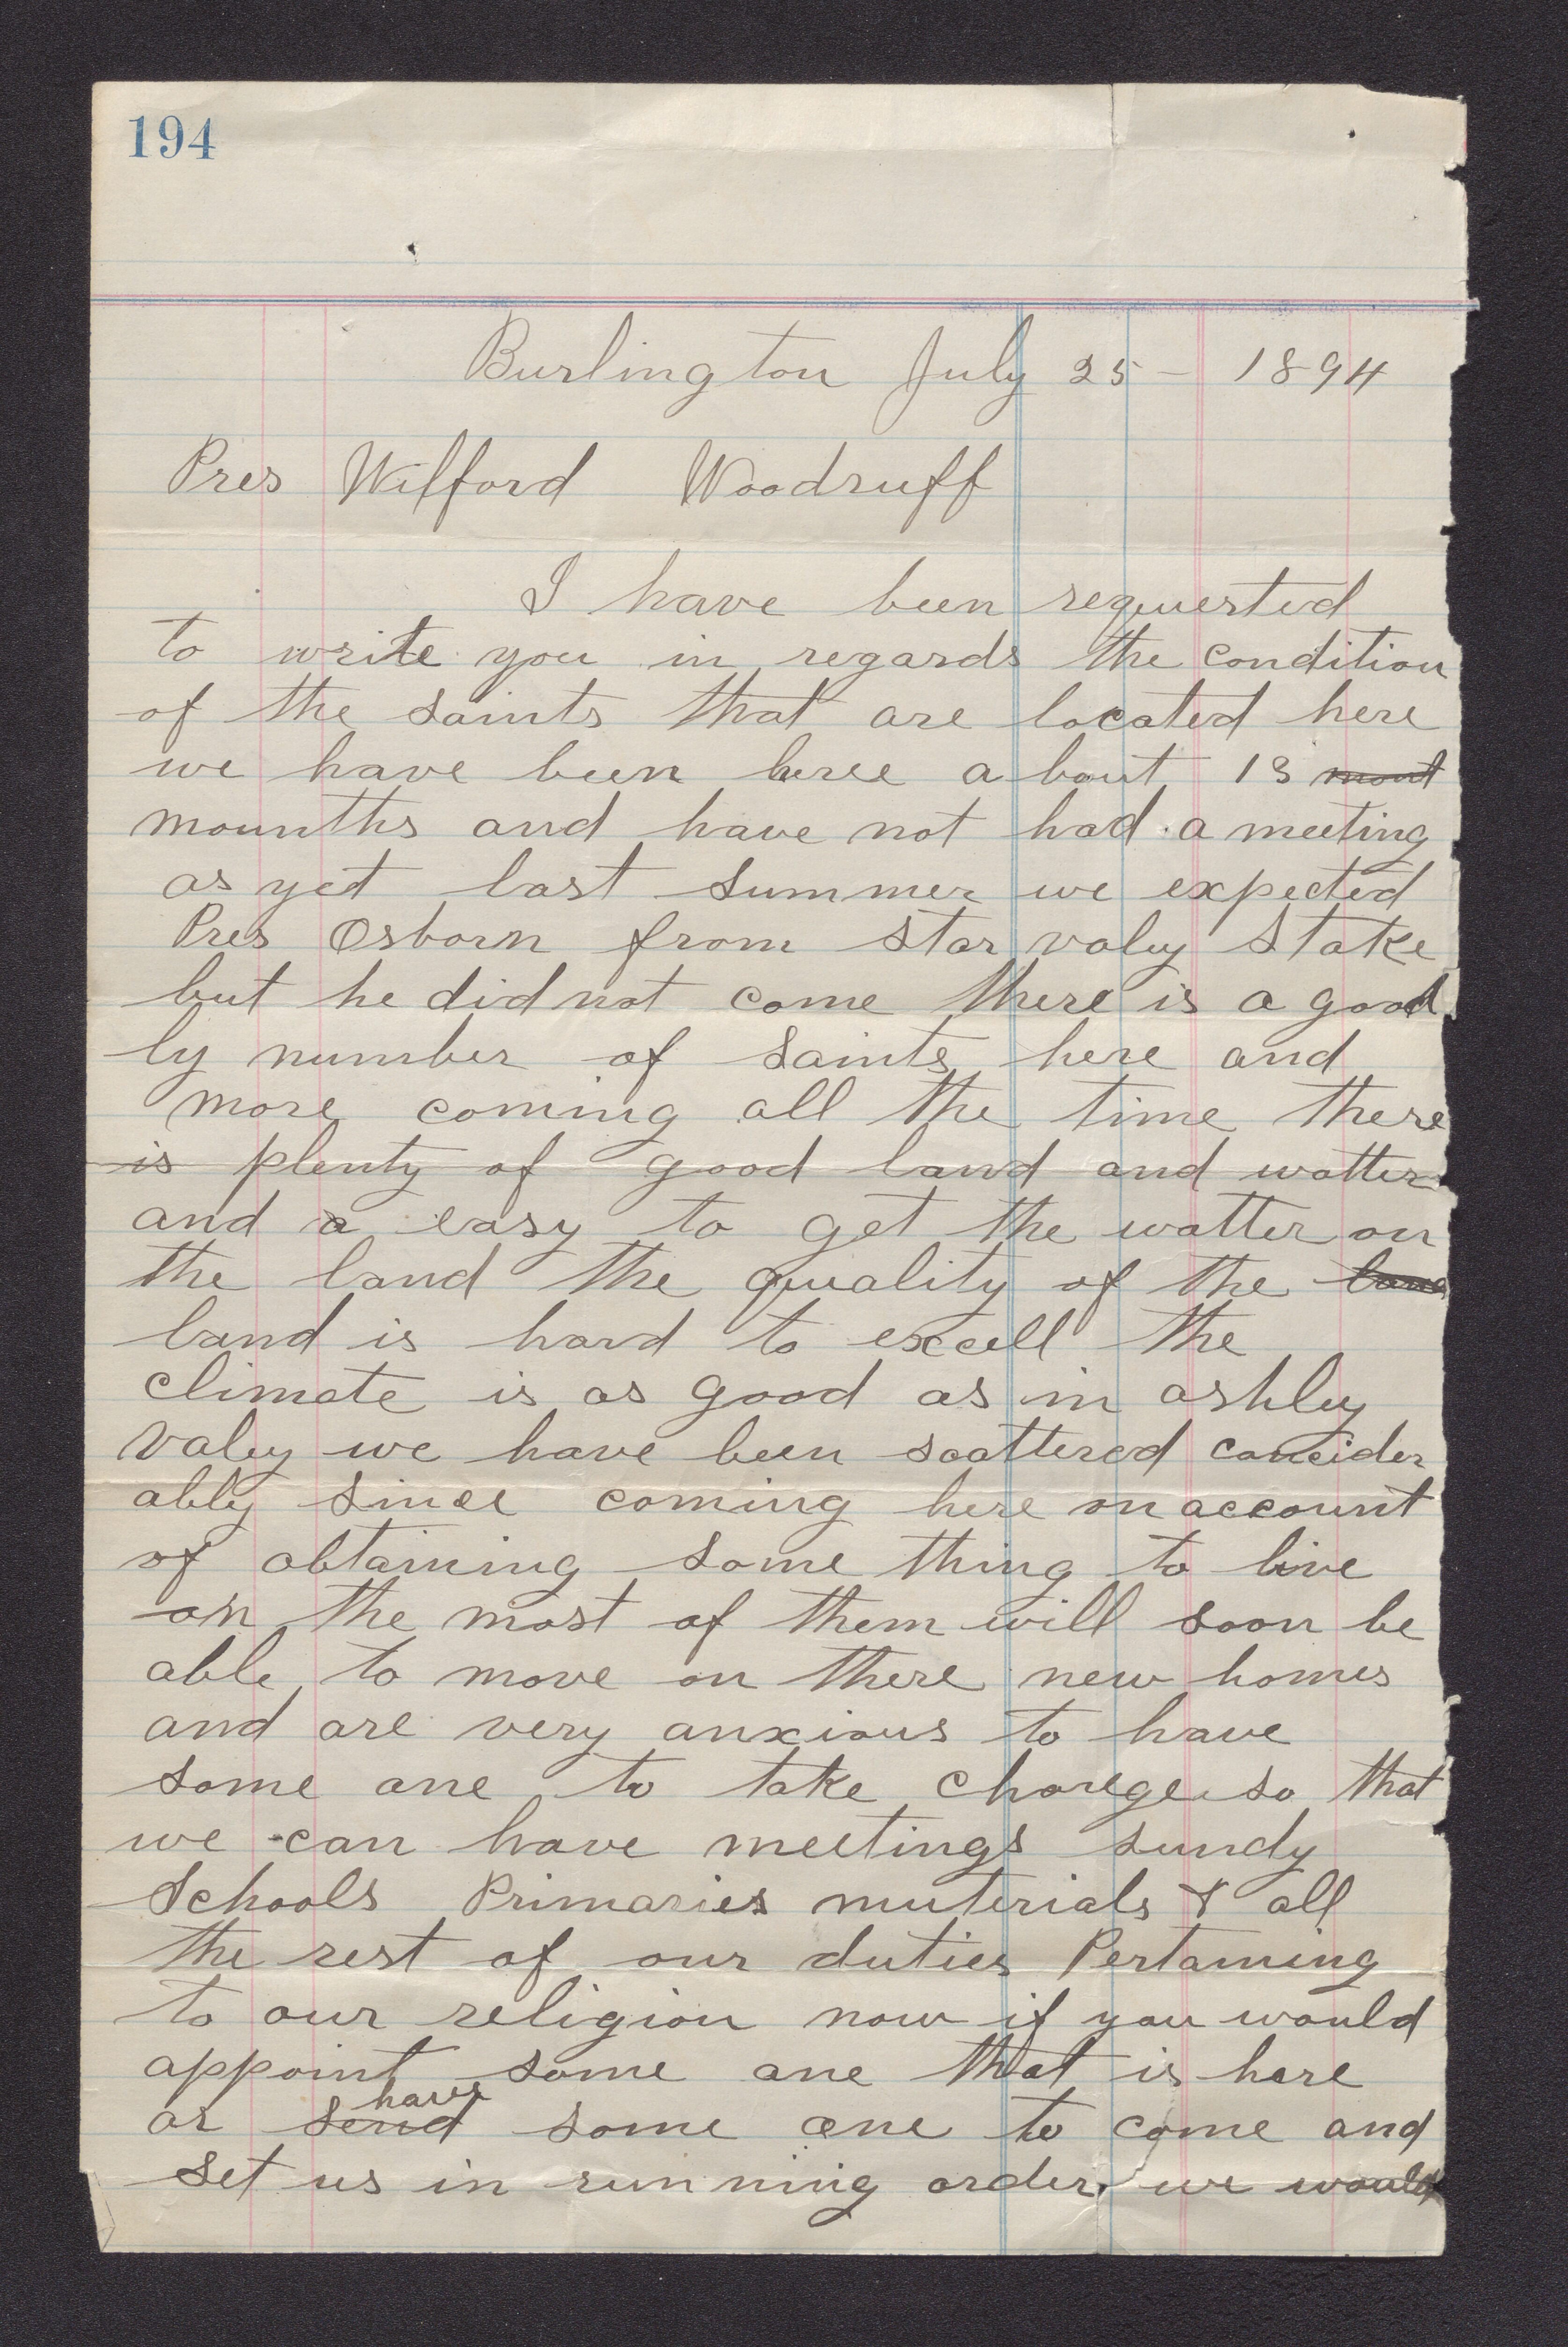 194
Burlington July 25 - 1894
Pres Wilford Woodruff
I have been requested
to write you in regards the condition
of the saints that are located here
we have been heree a bout 18 mont
mounths and have not had a meeting
as yet last summer we expected
Pres Osborn from star valey Stake
but he did not come there is a good
ly number of saints here and
more coming all the time there
is plenty of good land and watter
and a easy to get the watter on
the land the quality of the land
land is hard to excell the
climate is as good as in ashley
valey we have been scattered concider
ably since coming here on account
of obtaining some thing to live
on the most of them will soon be
able to move on there new homes
and are very anxious to have
some one to take charege so that
we can have meetings sundy
Schools Primaries muterials & all
the rest of our duties Pertaining
to our religion now if you would
appoint some one that is here
have
or send some one to come and
set us in running order we would